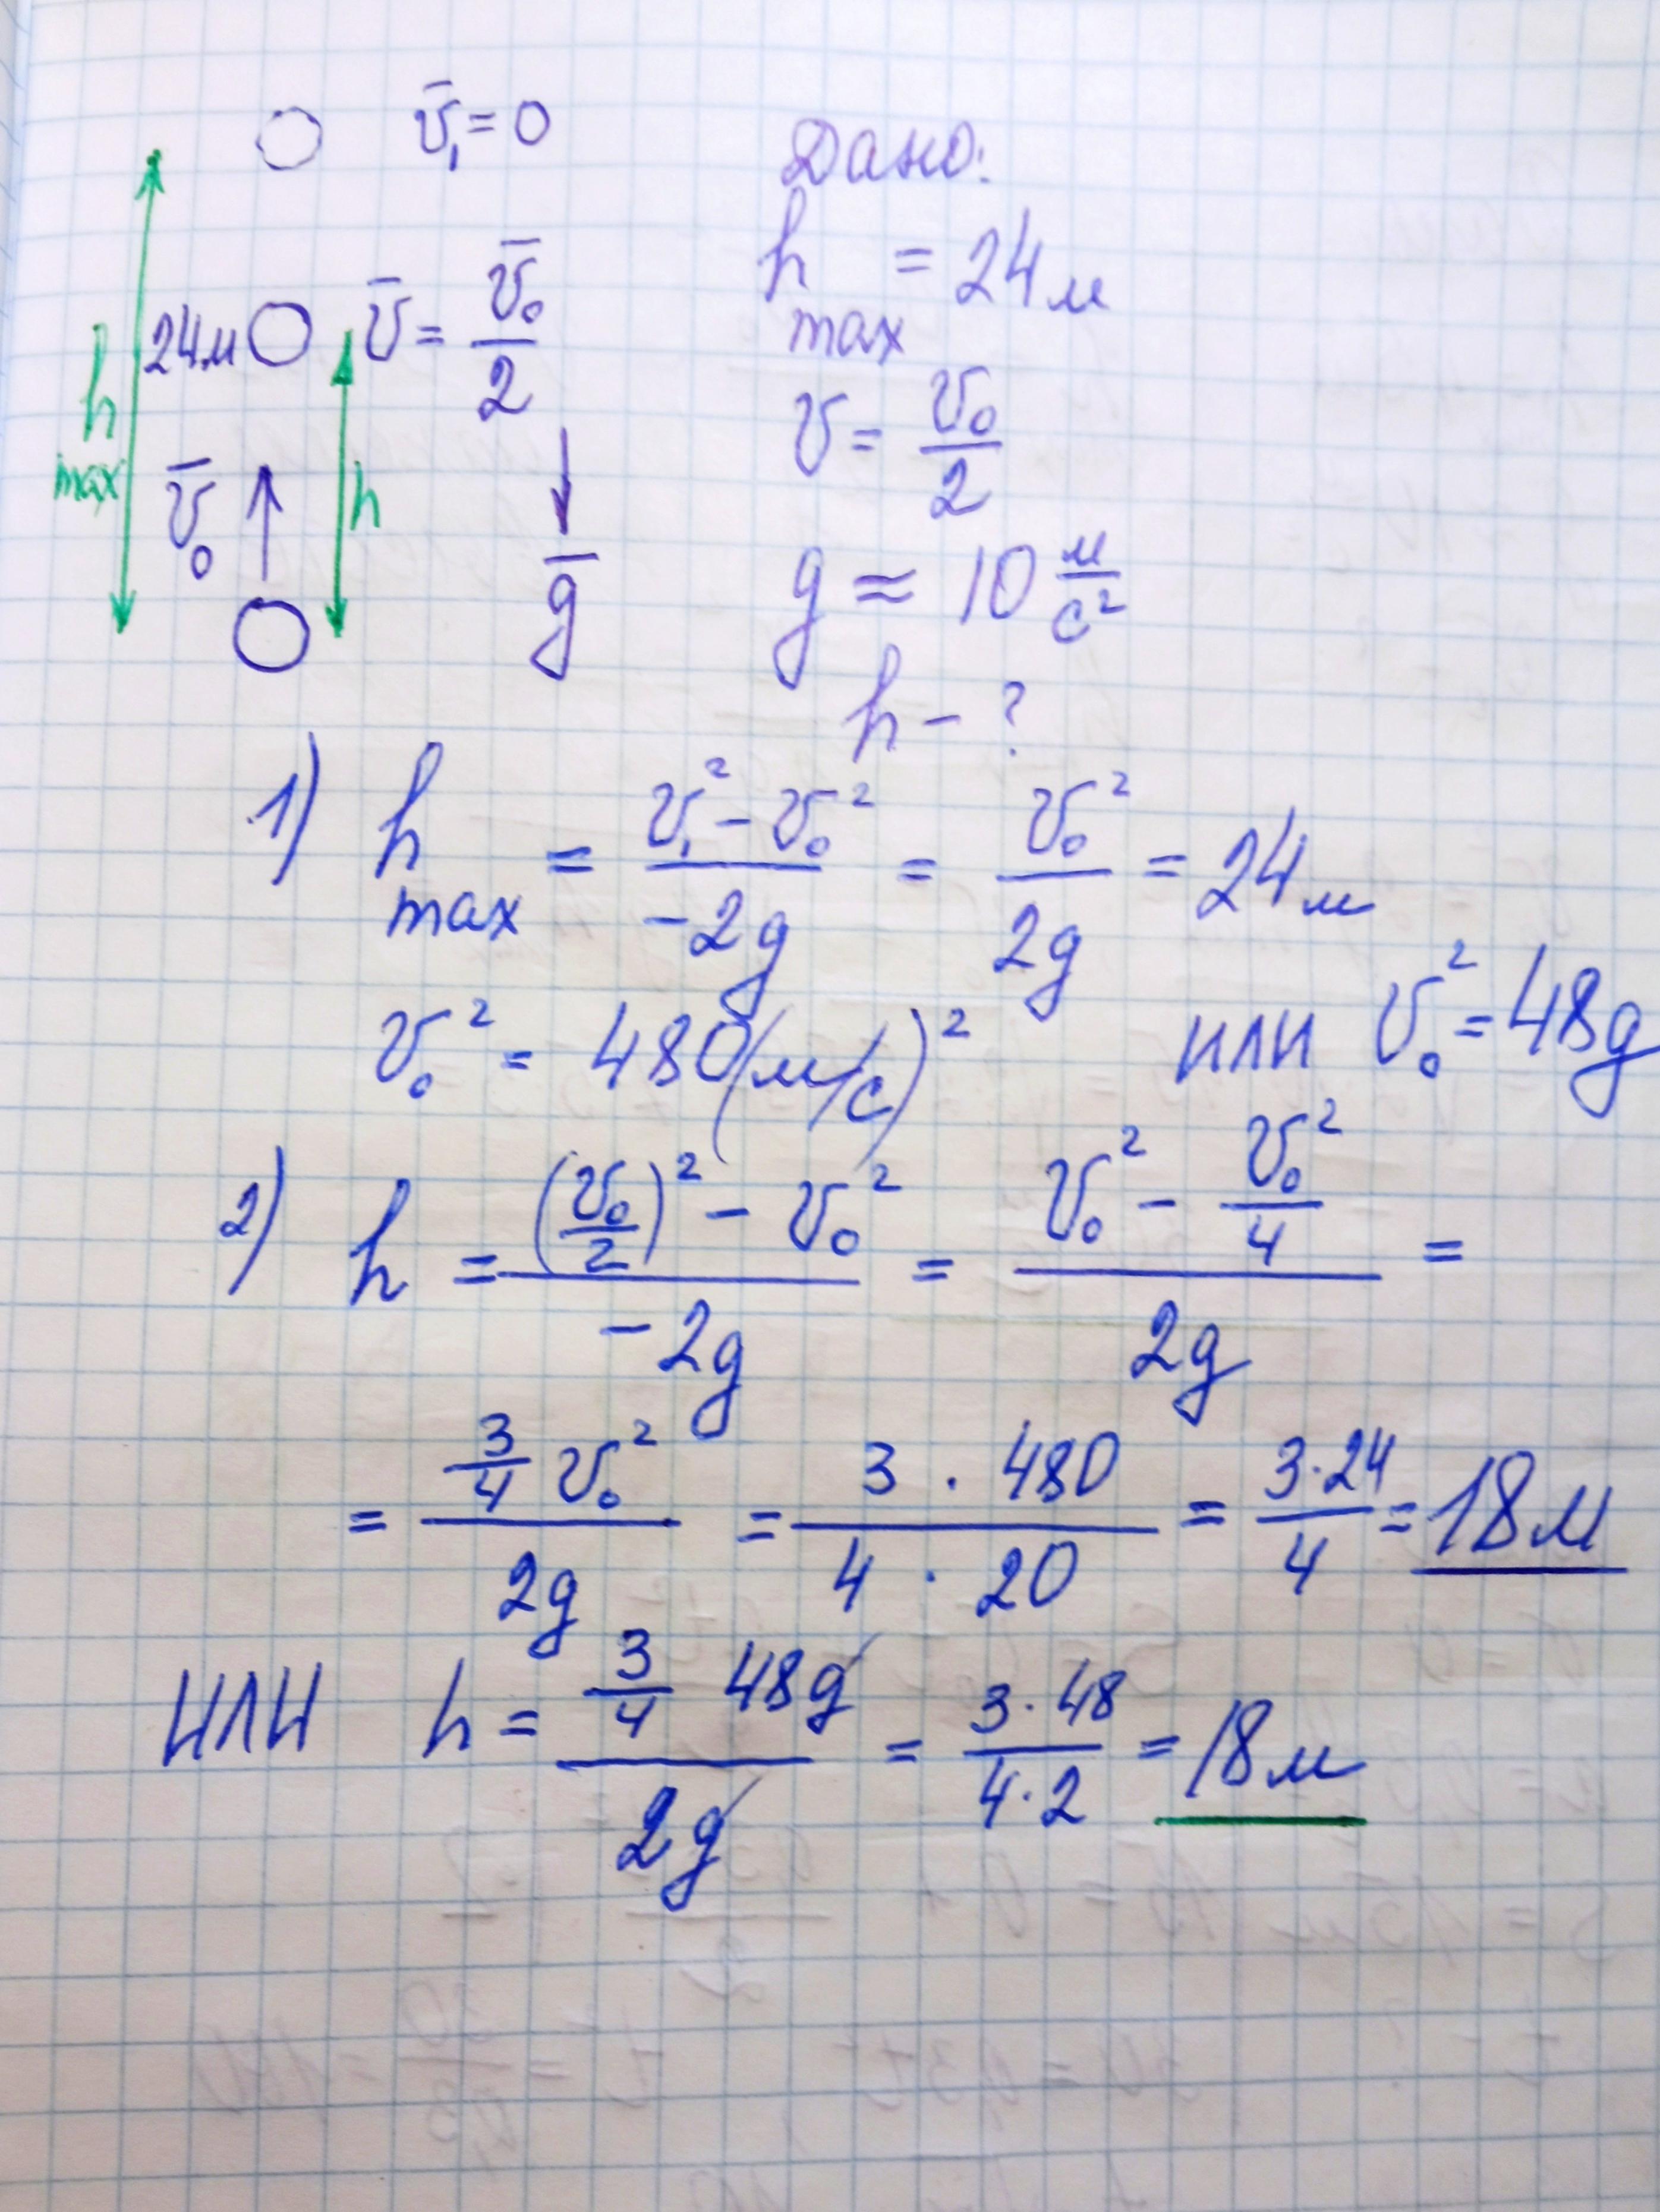 v̄₁ = 0
24м v̄ = v̄₀/2
h max
v̄₀
h
ḡ
Дано:
h max = 24м
v = v₀/2
g ≈ 10 м/с²
h - ?
1) h max = (v₁² - v₀²)/(-2g) = v₀²/2g = 24м
v₀² = 480(м/с)² или v₀² = 48g
2) h = ((v₀/2)² - v₀²)/(-2g) = (v₀² - v₀²/4)/2g =
= (3/4 v₀²)/2g = (3 · 480)/(4 · 20) = (3·24)/4 = 18м
или h = (3/4 48g)/2g = (3·48)/(4·2) = 18м